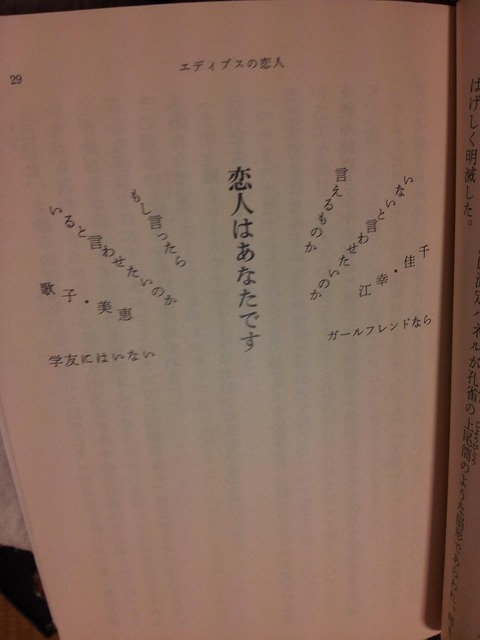 はげしく明滅した。
ネルが孔雀の上尾筒のような扇形であらわれ
29
エディプスの恋人
ガールフレンドなら
千佳・幸江
いないと言わせたいのか
言えるものか
恋人はあなたです
もし言ったら
いると言わせたいのか
歌子・美恵
学友にはいない